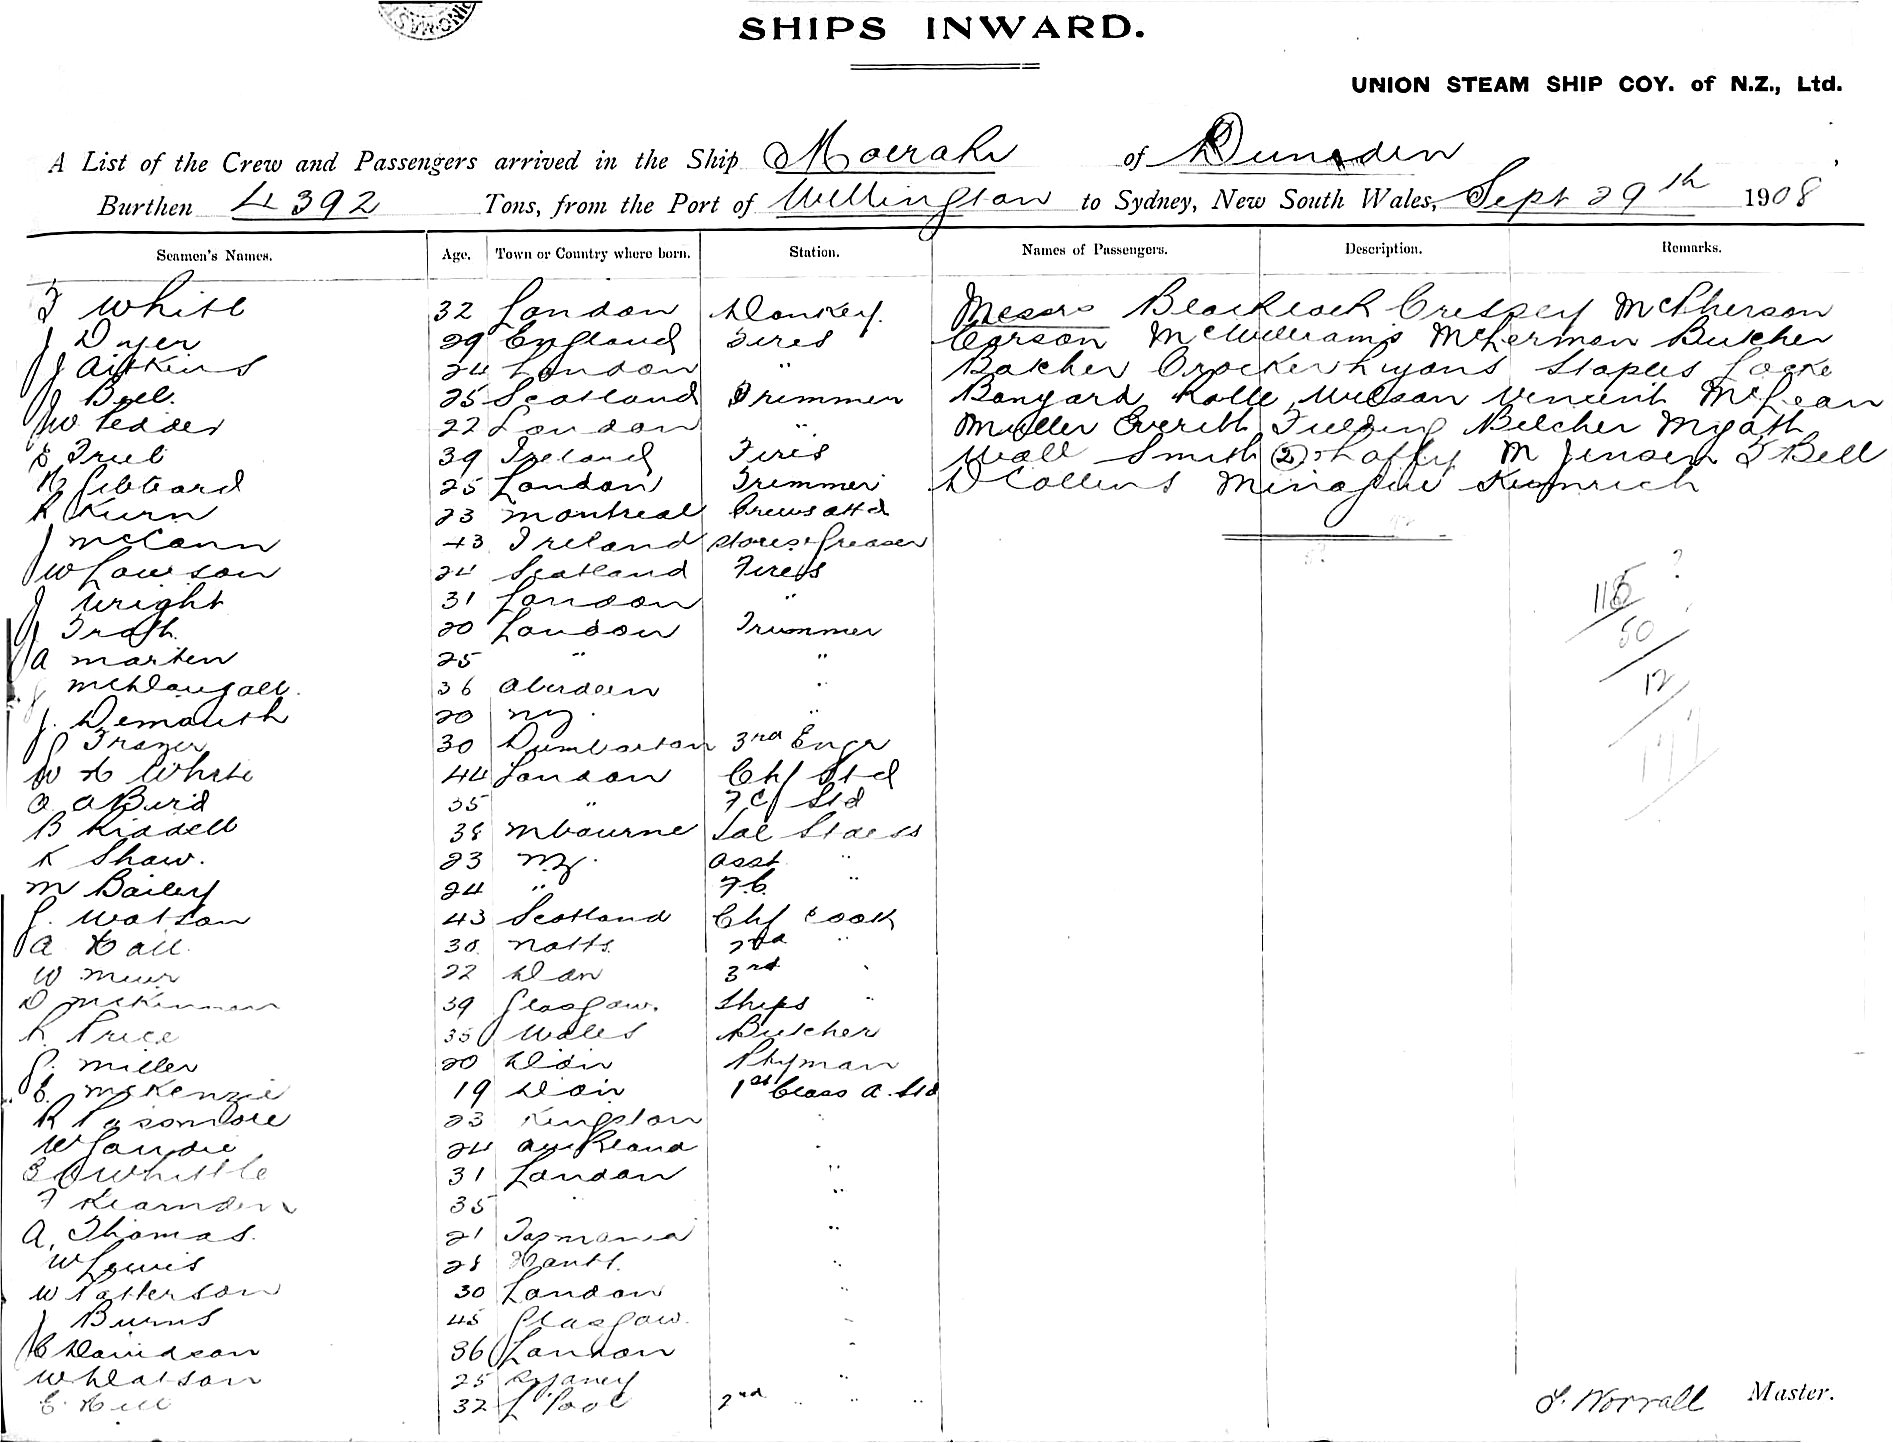 SHIPS INWARD.
UNION STEAM SHIP COY. of N.Z., Ltd.
A List of the Crew and Passengers arrived in the Ship Moeraki of Dunedin
Burthen 4392 Tons, from the Port of Wellington to Sydney, New South Wales, Sept 29th 1908
Seamen's Names. Age. Town or Country where born. Station. Names of Passengers. Description. Remarks.
F White 32 London Donkey. Messrs Blacklock Cressey McPherson
J Dyer 29 England Fires Carson McWilliams McKernon Butcher
J Aitkins 24 London " Batcher Crocker Lyons Staples Locke
J Bell. 25 Scotland Trimmer Bonyard Rolle Wilson Vincent McLean
W Pedder 22 London " Muller Everitt Fielding Belcher Myath
39 Ireland Fires Wall Smith (2) M Jensen F Bell
Gibbard 25 London Trimmer D Collins Kumrich
R Kurn 23 Montreal Crews attd
J McCann 43 Ireland stores & Greaser
W Lawson 24 Scotland Fires
J Wright 31 London "
J Troth. 20 London Trimmer
A Marten 25 " "
J McDougall. 36 Aberdeen "
J. Demauth 20 NZ. "
J Frazer 30 Dumbarton 3rd Engr
W H White 44 London Chf Std
O. A Burd 35 " F C Std
B Riddell 38 Mbourne Sal Stdess
K Shaw. 23 NZ. Asst "
M Bailey 24 " F.C. "
J. Watson 43 Scotland Chf Cook
A Hall 38 Notts. 2nd "
W Muir 22 Dan 3rd "
D McKinnon 39 Glasgow. Ships "
R Price 35 Wales Butcher
J. Miller 20 Ddin Ptyman
E. McKenzie 19 Ddin 1st Class A. Std
R Passmore 23 Kingston "
W Gaudie 24 Auckland "
Whittle 31 London "
F 35 "
A. Thomas. 21 Tasmania "
W Lewis 28 Hants. "
W Patterson 30 London "
J Burns 45 Glasgow. "
C Davidson 36 London "
W Watson 25 Sydney "
E. Hill 32 L'Pool 2nd " "
115 ?
50
12
177
Worrall Master.